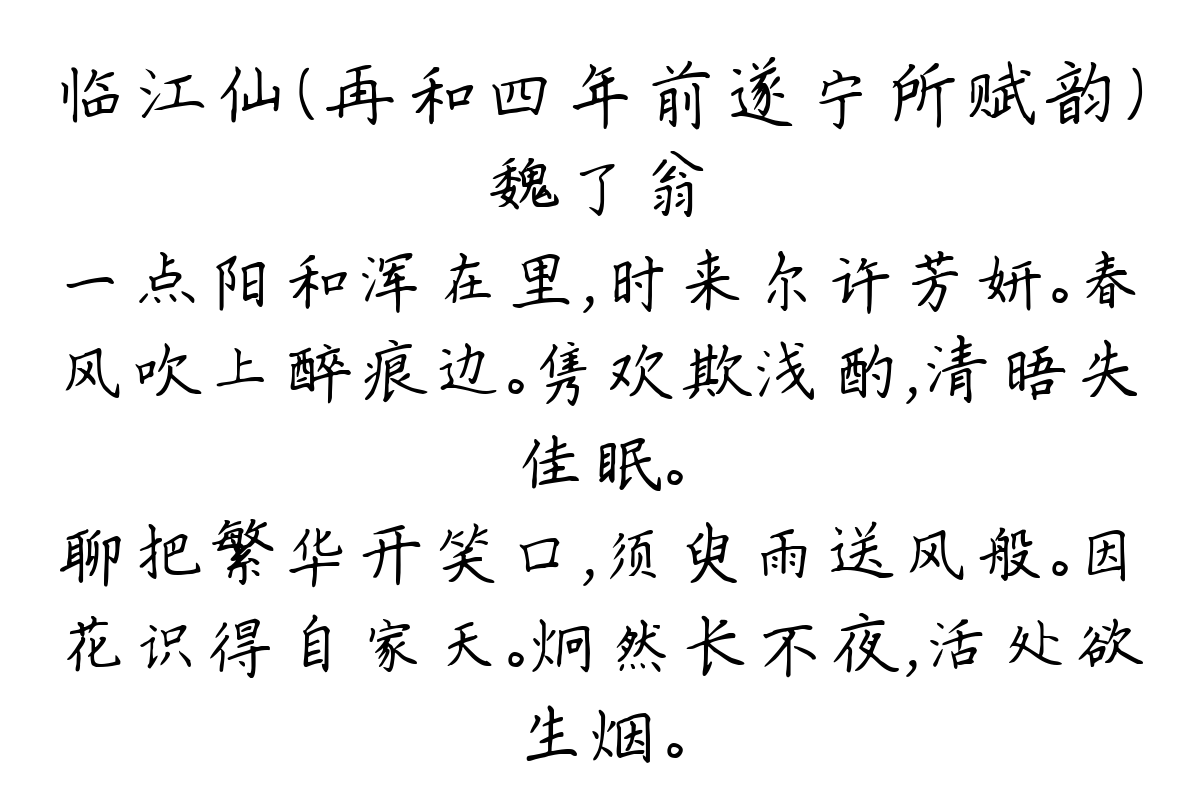 临江仙(再和四年前遂宁所赋韵)
魏了翁
一点阳和浑在里,时来尔许芳妍。春
风吹上醉痕边。隽欢欺浅酌,清晤失
佳眠。
聊把繁华开笑口,须臾雨送风般。因
花识得自家天。炯然长不夜,活处欲
生烟。